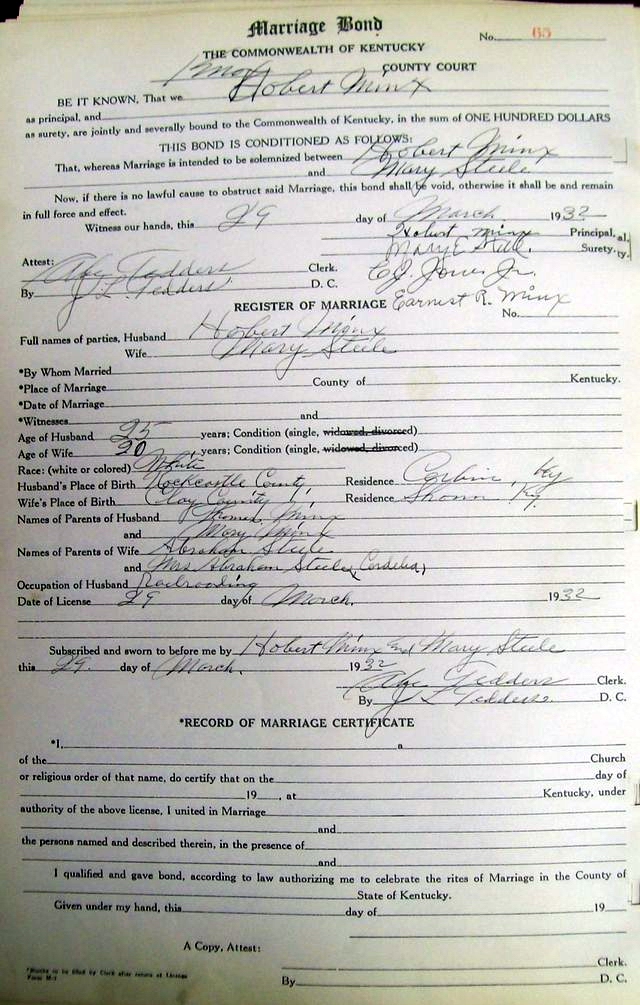 Marriage Bond
No. 65
THE COMMONWEALTH OF KENTUCKY
Knox COUNTY COURT
BE IT KNOWN, That we Hobert Minx
as principal, and
as surety, are jointly and severally bound to the Commonwealth of Kentucky, in the sum of ONE HUNDRED DOLLARS
THIS BOND IS CONDITIONED AS FOLLOWS:
That, whereas Marriage is intended to be solemnized between Hobert Minx
and Mary Steele
Now, if there is no lawful cause to obstruct said Marriage, this bond shall be void, otherwise it shall be and remain
in full force and effect.
Witness our hands, this 29 day of March 1932
Hobert Minx Principal,
Mary E Steele. Surety.
Attest:
Abe Tedders Clerk. E.J. Jones Jr.
By J L Tedders D. C.
REGISTER OF MARRIAGE Earnest R. Minx
No.
Full names of parties, Husband Hobert Minx
Wife Mary Steele
*By Whom Married
*Place of Marriage County of Kentucky.
*Date of Marriage
*Witnesses and
Age of Husband 25 years; Condition (single, widowed, divorced)
Age of Wife 20 years; Condition (single, widowed, divorced)
Race: (white or colored) White
Husband's Place of Birth Rockcastle County Residence Corbin, Ky
Wife's Place of Birth Clay County Residence Ky.
Names of Parents of Husband Thomas Minx
and Mary Minx
Names of Parents of Wife Abraham Steele
and Mrs Abraham Steele (Cordelia)
Occupation of Husband Railroading
Date of License 29 day of March. 1932
Subscribed and sworn to before me by Hobert Minx and Mary Steele
this 29. day of March. 1932
Abe Tedders Clerk.
By J L Tedders. D. C.
*RECORD OF MARRIAGE CERTIFICATE
*I, a
of the Church
or religious order of that name, do certify that on the day of
19 , at Kentucky, under
authority of the above license, I united in Marriage
and
the persons named and described therein, in the presence of
and
I qualified and gave bond, according to law authorizing me to celebrate the rites of Marriage in the County of
State of Kentucky.
Given under my hand, this day of 19
A Copy, Attest:
Clerk.
By D. C.
*Blanks to be filled by Clerk after return of License
Form M-1